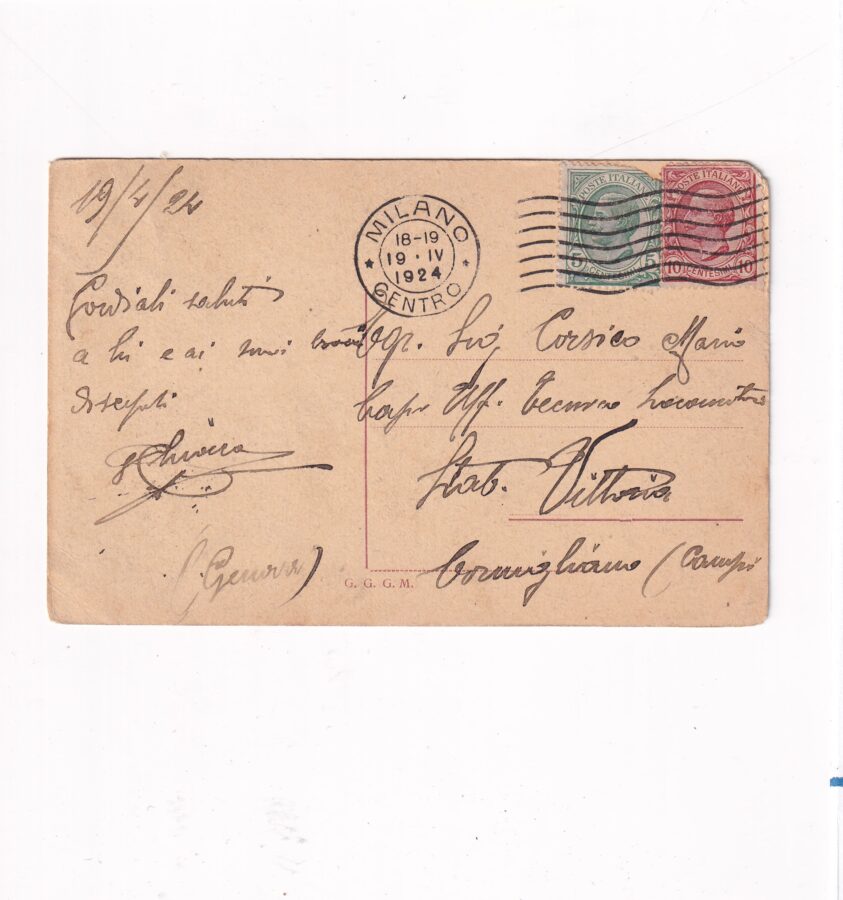 19/4/24
Cordiali saluti
a lei e ai suoi
F. Chiesa
(Genova)
MILANO
18-19
19 · IV
1924
CENTRO
POSTE ITALIANE
5 5
CENTESIMI
POSTE ITALIANE
10 10
CENTESIMI
Egr. Sig. Corsico Mario
Capo Uff. Tecnico Locomotive
Stab. Vittoria
Cornigliano (Campi
G. G. G. M.